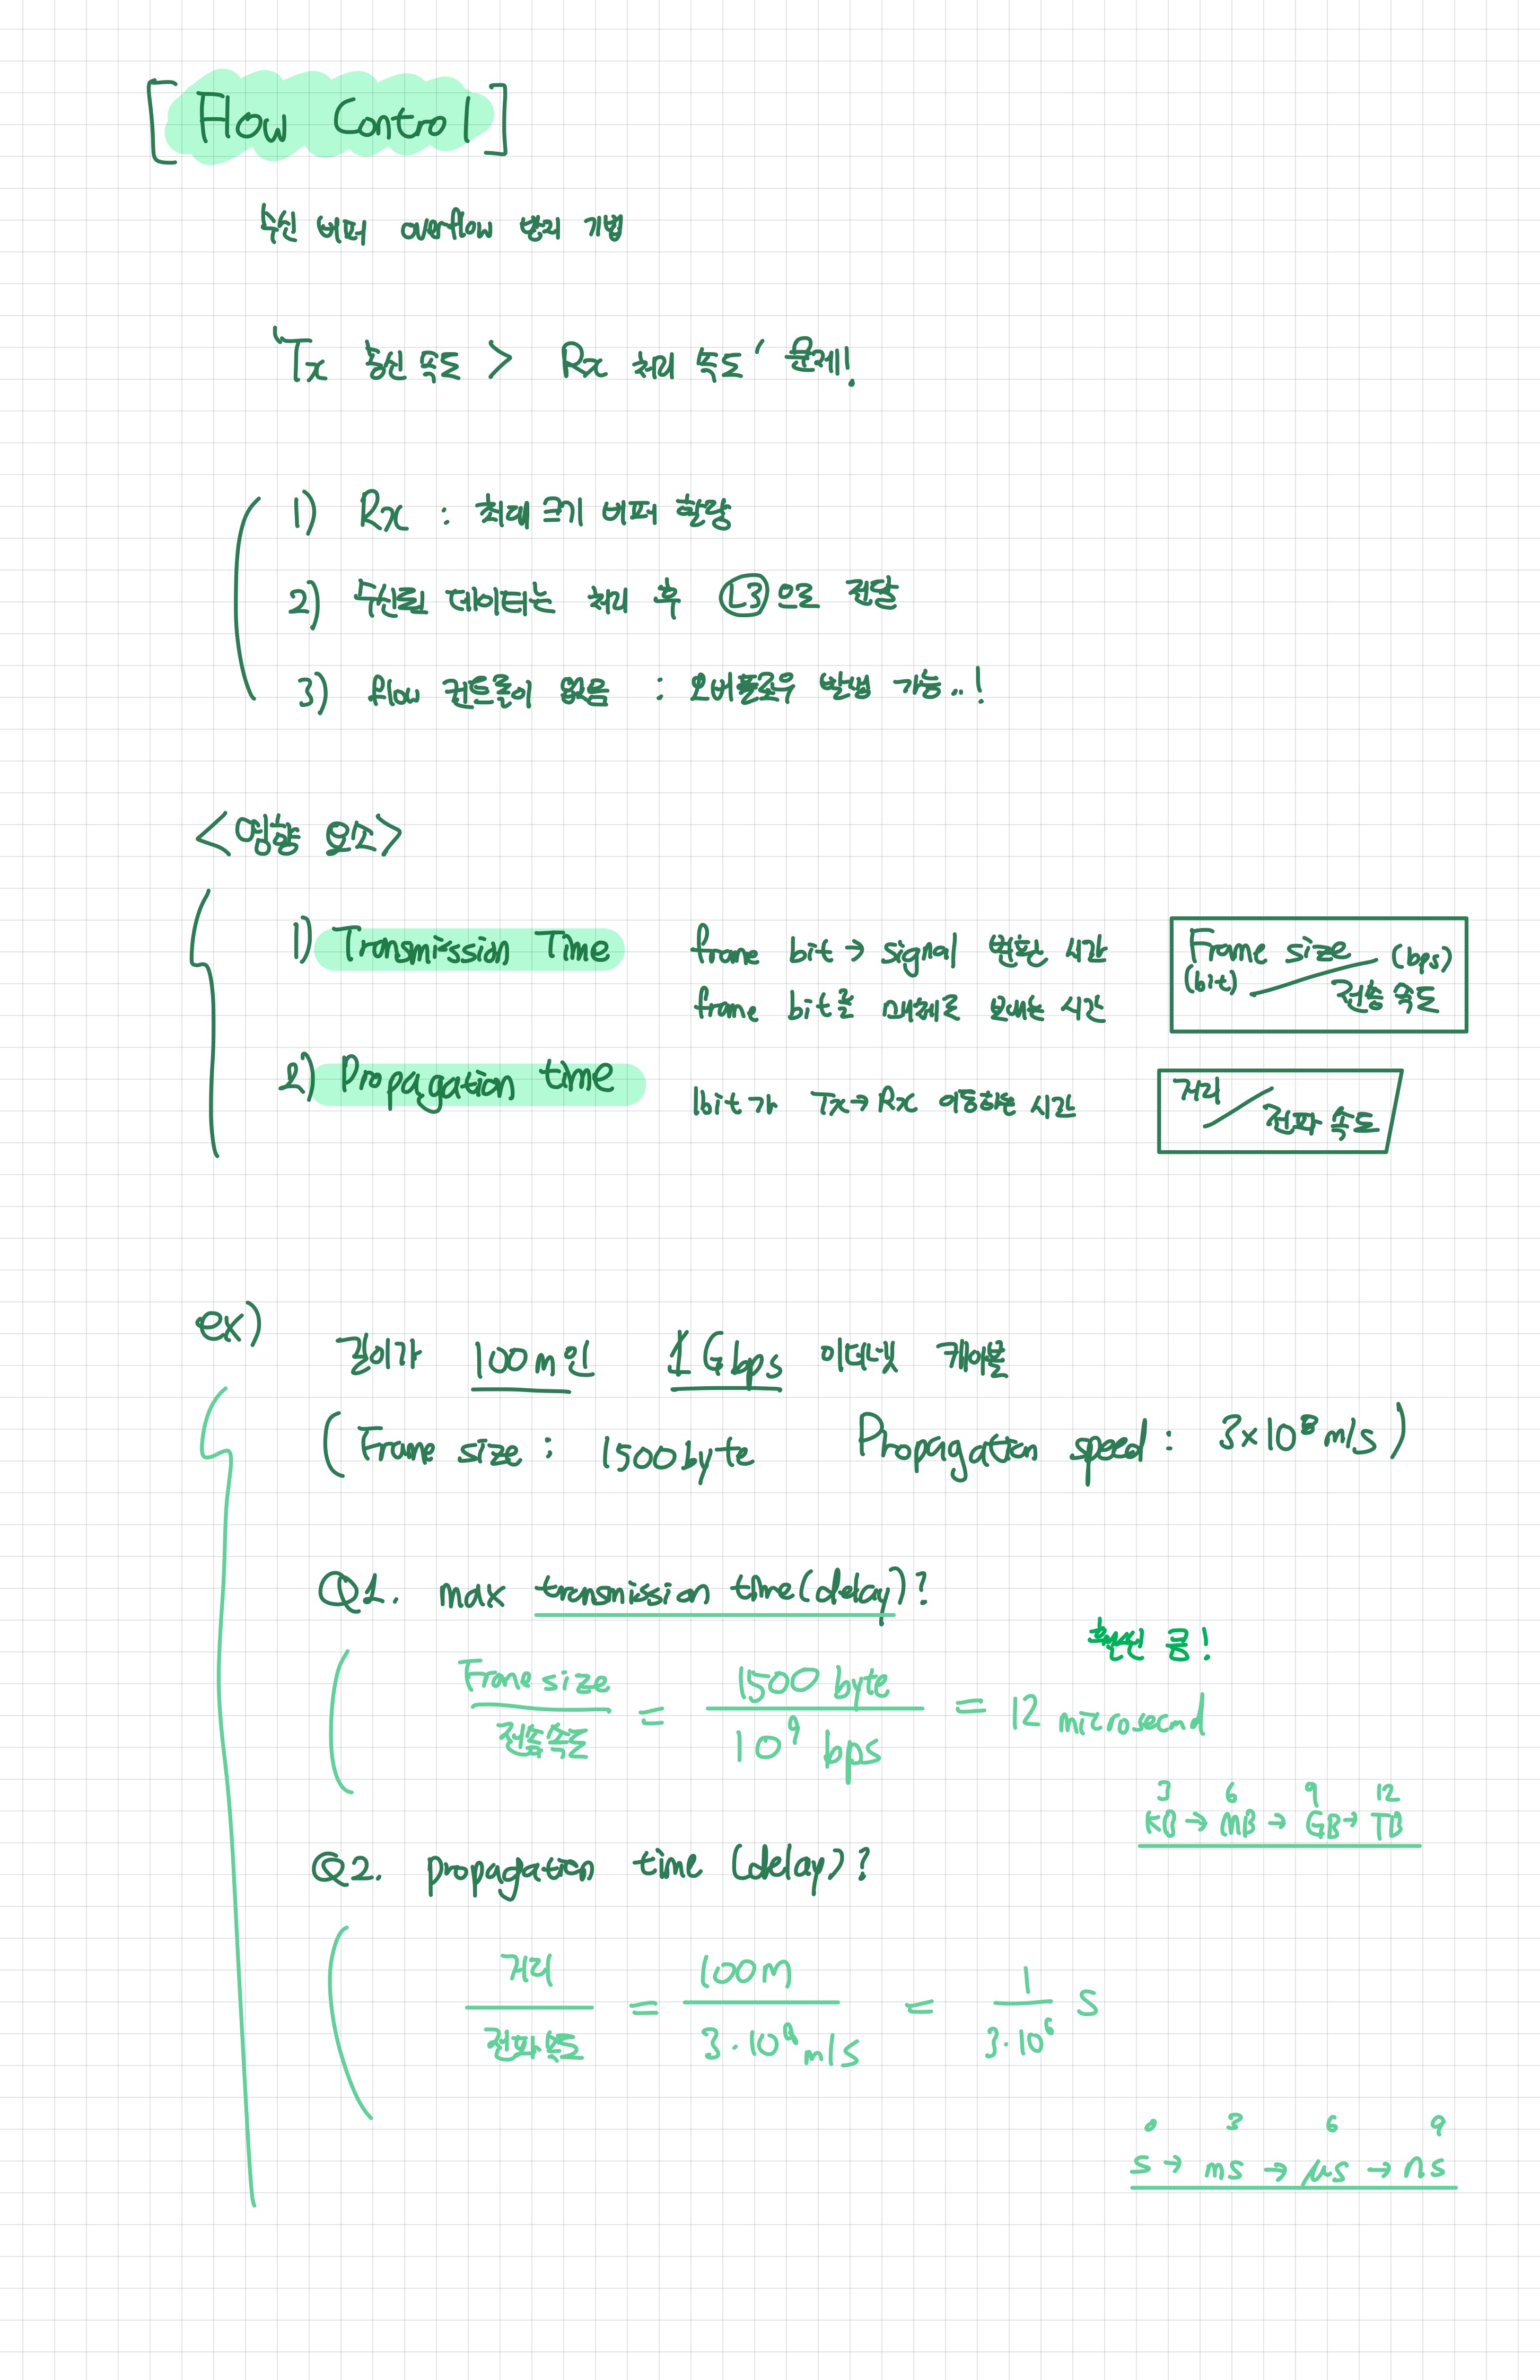 [Flow Control]
수신 버퍼 overflow 방지 기법
'Tx 송신 속도 > Rx 처리 속도' 문제!
1) Rx : 최대 크기 버퍼 할당
2) 수신된 데이터는 처리 후 L3으로 전달
3) flow 컨트롤이 없음 : 오버플로우 발생 가능..!
<영향 요소>
1) Transmission Time
frame bit → signal 변환 시간
frame bit을 매체로 보내는 시간
Frame size (bit) / 전송 속도 (bps)
2) Propagation time
1bit가 Tx→Rx 이동하는 시간
거리 / 전파 속도
ex)
길이가 100m인 1Gbps 이더넷 케이블
(Frame size : 1500byte Propagation speed : 3×10⁸ m/s)
Q1. max transmission time(delay)?
확인 콤!
Frame size / 전송속도 = 1500 byte / 10⁹ bps = 12 microsecond
3 6 9 12
KB → MB → GB → TB
Q2. propagation time (delay)?
거리 / 전파속도 = 100m / 3·10⁸ m/s = 1 / 3·10⁶ s
0 3 6 9
s → ms → μs → ns